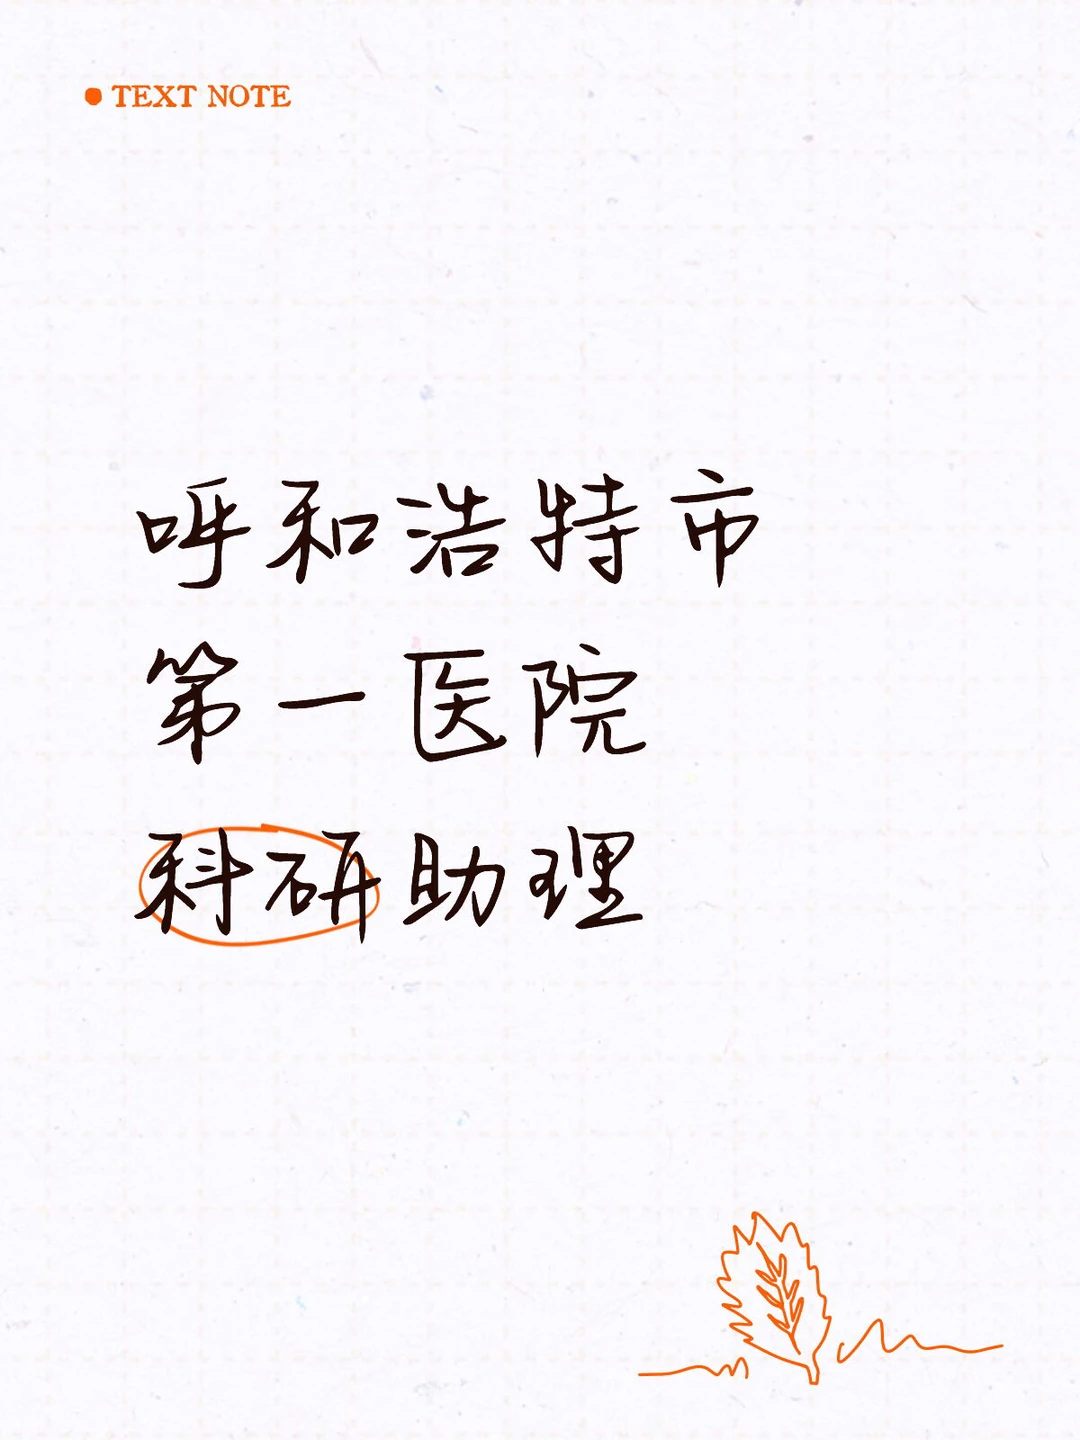 TEXT NOTE
呼和浩特市
第一医院
科研助理